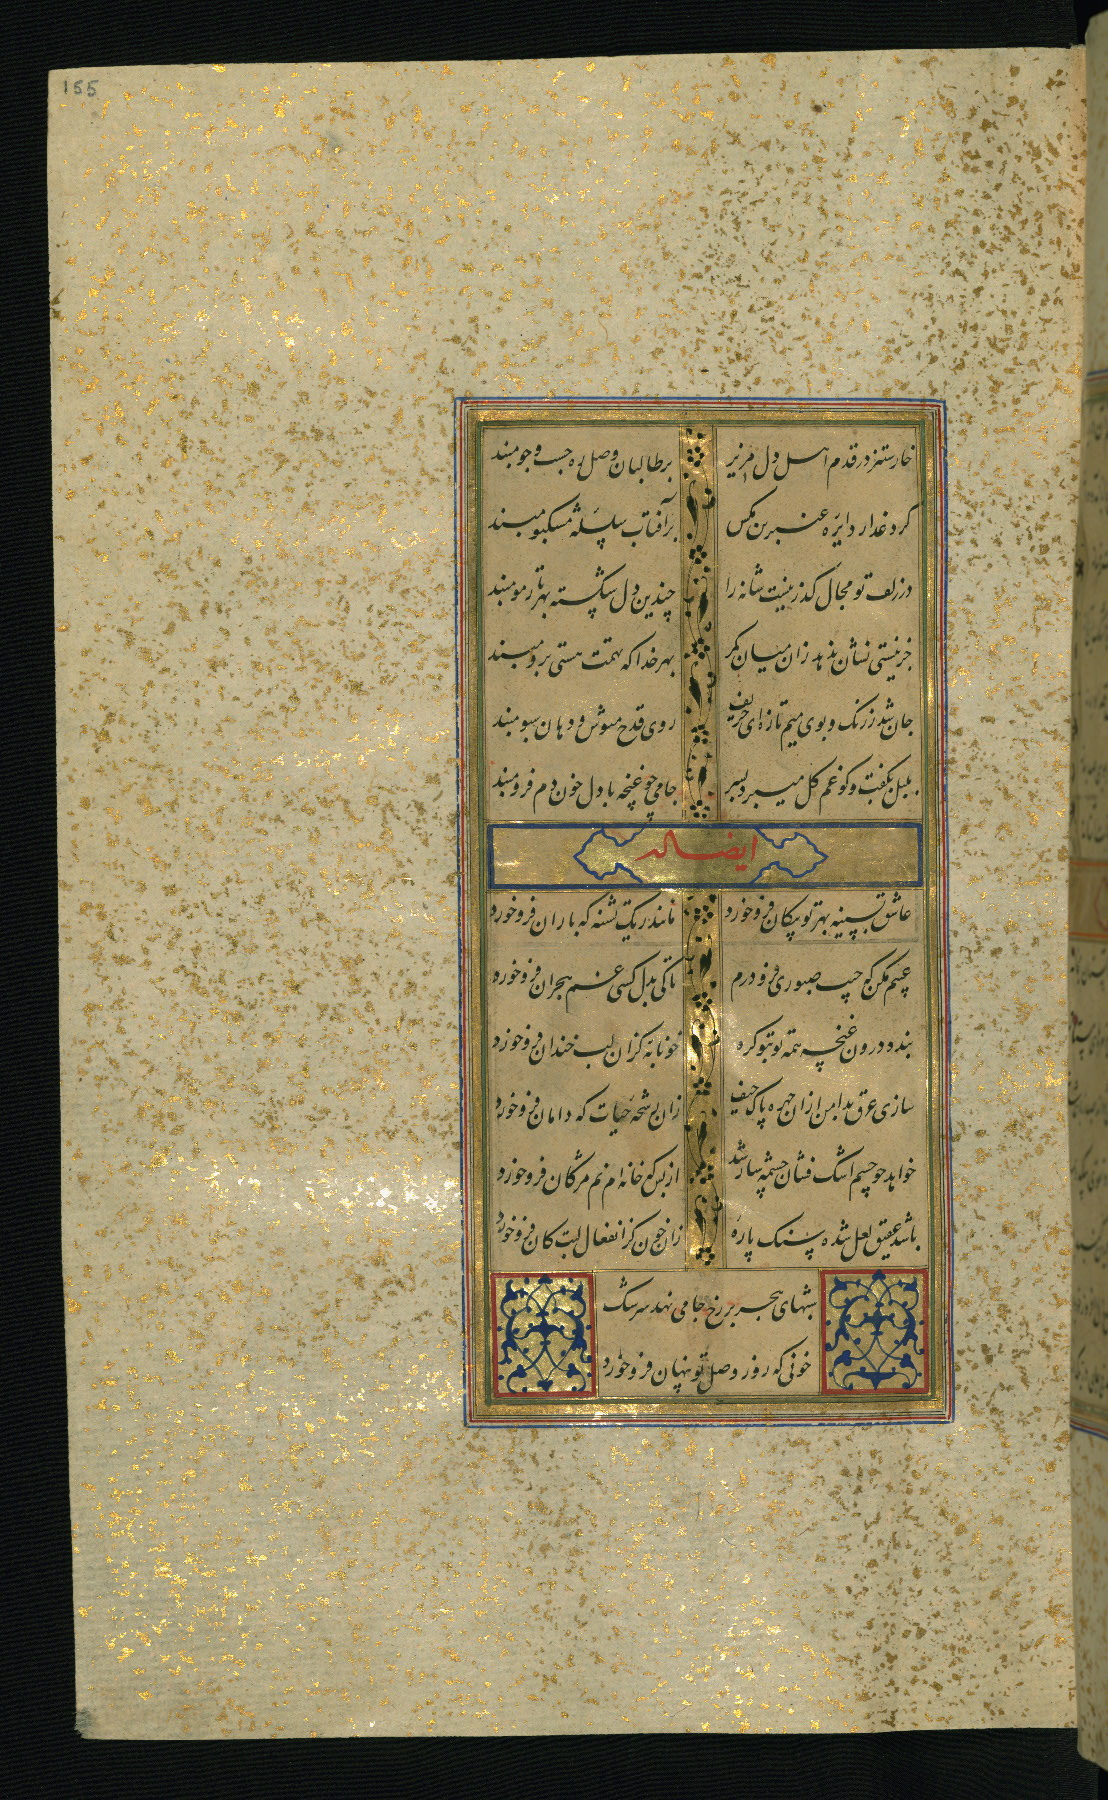 155
خار ستیز در قدم اهل دل مریز بر طالبان وصل ره جست و جو مبند
گرد عذار دایره عنبرین مکش بر آفتاب سلسله مشکبو مبند
در زلف تو مجال گذر نیست شانه را چندین دل شکسته بهر تار مو مبند
جز نیستی نشان ندهد زان میان کمر بهر خدا که تهمت هستی برو مبند
جان شد ز رنک و بوی میم تازه ای حریف روی قدح مپوش و دهان سبو مبند
بلبل بگفت و کو غم کل میبرد بسر جامی چو غنچه با دل خون دم فرو مبند
ایضا له
عاشق بسینه بهر تو پیکان فرو خورد مانند ریک تشنه که باران فرو خورد
عیبم مکن که جیب صبوری فرو درم تا کی بدل کسی غم هجران فرو خورد
بندد درون غنچه همه تو بتو کره خونابه کزان لب خندان فرو خورد
سازی عرق بدامن ازان چهره پاک حیف زان رشحه حیات که دامان فرو خورد
خواهد چو چشم اشک فشان چشمه سار شد از بس که خانه ام نم مژکان فرو خورد
باشد عقیق لعل شده سنک پاره زان خون کز انفعال لبت کان فرو خورد
شبهای هجر بر رخ جامی نهد سرشک
خونی که روز وصل تو پنهان فرو خورد